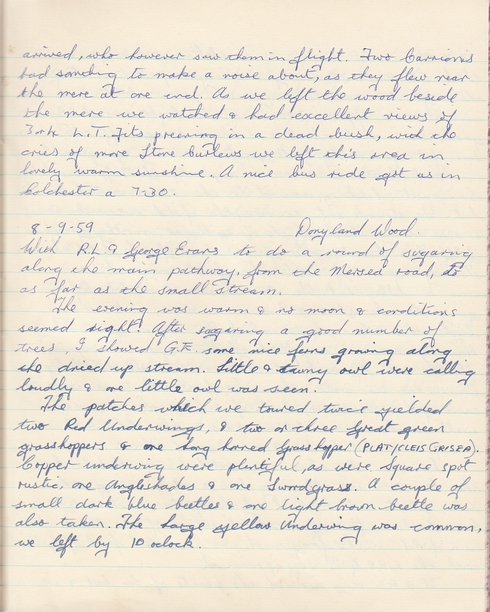 arrived, who however saw them in flight. Two Carrion's
had somthing to make a noise about, as they flew near
the mere at one end. As we left the wood beside
the mere we watched & had excellent views of
3 or 4 L.T. Tits preening in a dead bush, with the
cries of more Stone Curlews we left this area in
lovely warm sunshine. A nice bus ride got as in
Colchester a 7.30.
8-9-59 Donyland Wood.
With R.L. & George Evans to do a round of sugaring
along the main pathway, from the Mersea road,
as far as the small stream.
The evening was warm & no moon & conditions
seemed right. After sugaring a good number of
trees, I showed G.E. some nice ferns growing along
the dried up stream. Little & tawny owl were calling
loudly & one little owl was seen.
The patches which we toured twice yielded
two Red Underwings, & two or three Great green
grasshoppers & one long horned Grasshopper (PLATYCLEIS GRISEA).
Copper underwing were plentiful, as were square spot
rustic, one Angleshades & one Swordgrass. A couple of
small dark blue beetles & one light brown beetle was
also taken. The large yellow Underwing was common,
we left by 10 oclock.